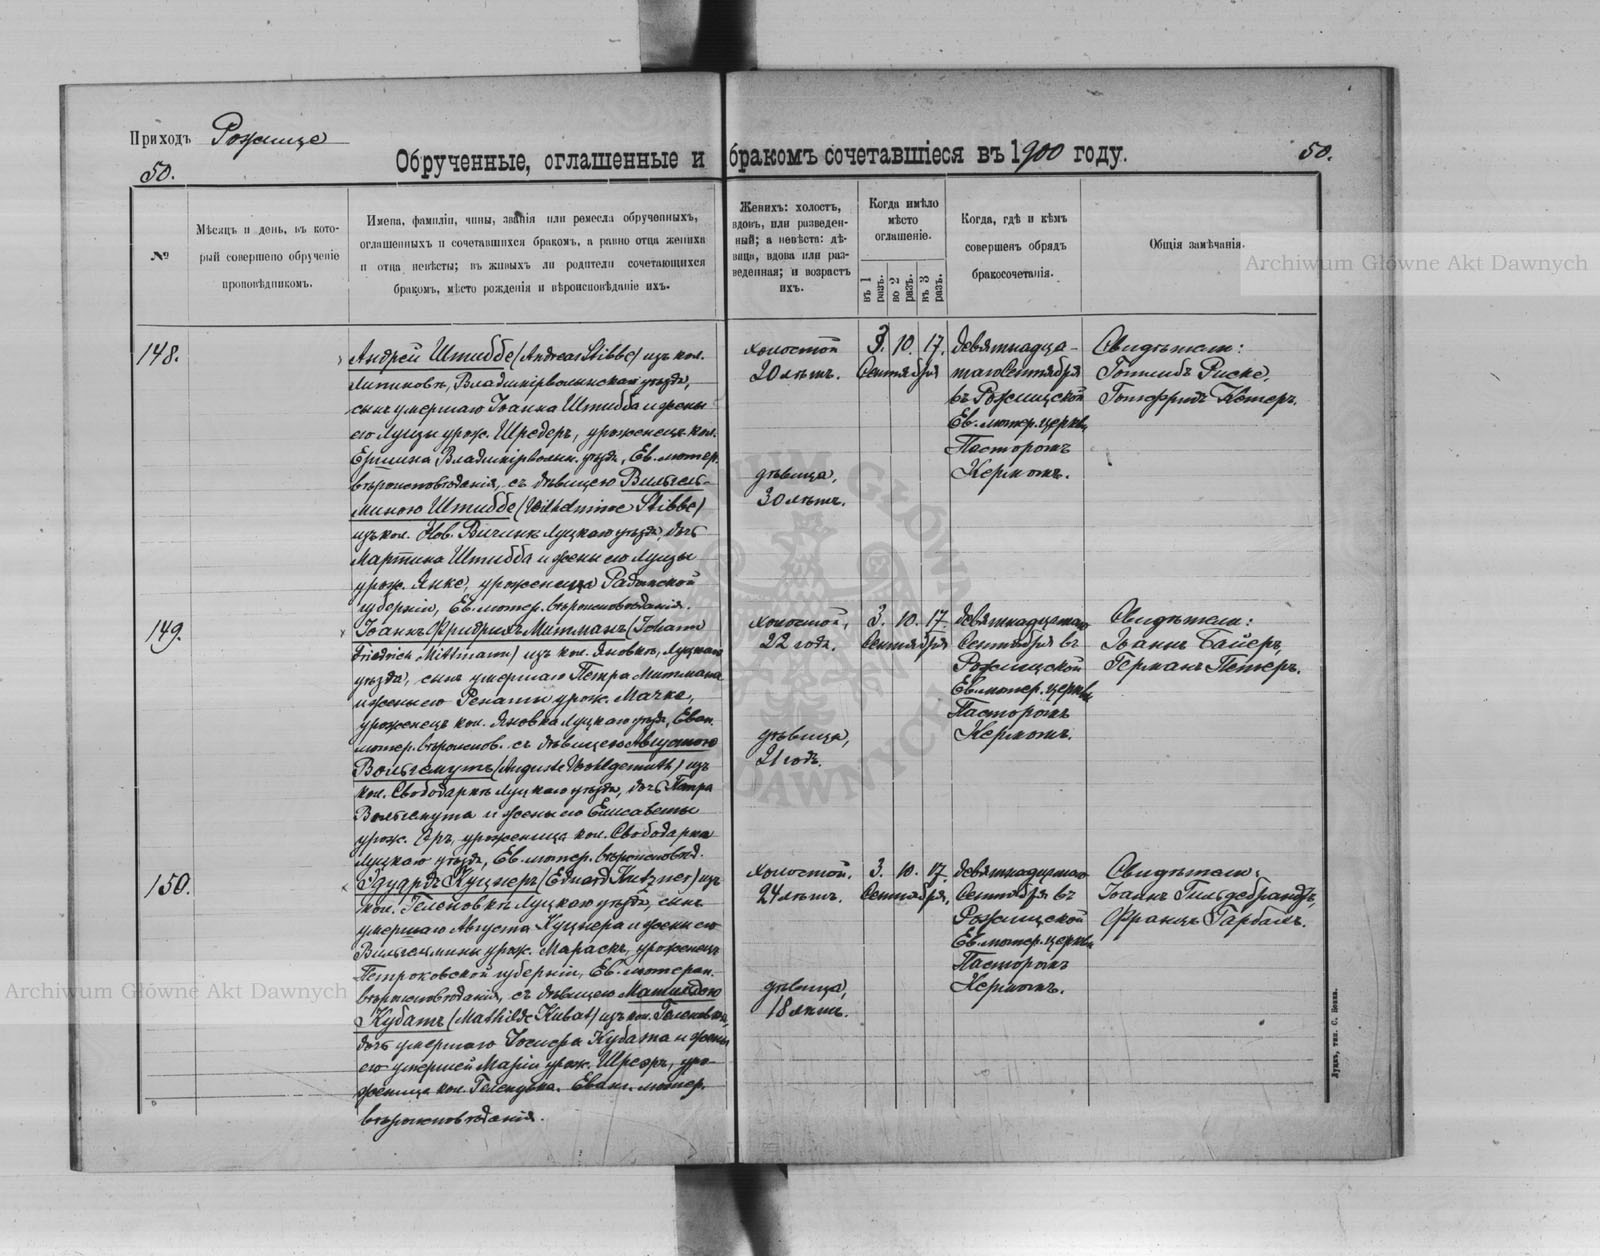 Приходъ Рожище
50.
Обрученные, оглашенные и бракомъ сочетавшіеся въ 1900 году.
50.
№
Мѣсяцъ и день, въ кото-
рый совершено обрученіе
проповѣдникомъ.
Имена, фамиліи, чины, званія или ремесла обрученныхъ,
оглашенныхъ и сочетавшихся бракомъ, а равно отца жениха
и отца невѣсты; въ живыхъ ли родители сочетающихся
бракомъ, мѣсто рожденія и вѣроисповѣданіе ихъ.
Женихъ: холостъ,
вдовъ, или разведен-
ный; а невѣста: дѣ-
вица, вдова или раз-
веденная; и возрастъ
ихъ.
Когда имѣло
мѣсто
оглашеніе.
въ 1 разъ.
во 2 разъ.
въ 3 разъ.
Когда, гдѣ и кѣмъ
совершенъ обрядъ
бракосочетанія.
Общія замѣчанія.
Archiwum Główne Akt Dawnych
148.
Андрей Штиббе (Andreas Stibbe) изъ кол.
Липиновъ, Владимірволынскаго уѣзда,
сынъ умершаго Іоанна Штибба и жены
его Луизы урож. Шредеръ, уроженецъ кол.
Владимірволын. уѣзда, Ев. лютер.
вѣроисповѣданія, съ дѣвицею Вильгель-
миною Штиббе (Wilhelmine Stibbe)
изъ кол. Нов. Луцкаго уѣзда, дочь
Мартина Штибба и жены его Луизы
урож. Янке, уроженица Радомской
губерніи, Ев. лютер. вѣроисповѣданія.
холостой
20 лѣтъ.
дѣвица,
30 лѣтъ.
3. 10. 17.
Сентября
девятнадца-
таго Сентября
въ Рожищской
Ев. лютер. церкви
Пасторомъ
Кермомъ.
Свидѣтели:
Готлибъ Риске,
Готфридъ Кётеръ.
149.
Іоаннъ Фридрихъ Митманъ (Johann
Friedrich Mittmann) изъ кол. Яновки, Луцкаго
уѣзда, сынъ умершаго Петра Митмана
и жены его Ренаты урож. Мачке,
уроженецъ кол. Яновка Луцкаго уѣзда, Еван.
лютер. вѣроиспов. съ дѣвицею Августою
Вольгемутъ (Auguste Wohlgemuth) изъ
кол. Свободарки Луцкаго уѣзда, дочь Петра
Вольгемута и жены его Елисаветы
урож. уроженица кол. Свободарка
Луцкаго уѣзда, Ев. лютер. вѣроисповѣд.
холостой,
22 года.
дѣвица,
21 годъ.
3. 10. 17.
Сентября
девятнадцатаго
Сентября въ
Рожищской
Ев. лютер. церкви
Пасторомъ
Кермомъ.
Свидѣтели:
Іоаннъ Байеръ,
Германъ Петеръ.
150.
Эдуардъ Куцнеръ (Eduard Kutzner) изъ
кол. Геленовки Луцкаго уѣзда, сынъ
умершаго Августа Куцнера и жены его
Вильгельмины урож. Мараск, уроженецъ
Петроковской губерніи, Ев. лютеран.
вѣроисповѣданія, съ дѣвицею Матильдою
Кубатъ (Mathilde Kubat) изъ кол. Геленовки,
дочь умершаго Іосифа Кубата и жены
его умершей Маріи урож. уро-
женица кол. Геленувка. Еван. лютер.
вѣроисповѣданія.
холостой.
24 лѣтъ.
дѣвица,
18 лѣтъ.
3. 10. 17.
Сентября,
девятнадцатаго
Сентября въ
Рожищской
Ев. лютер. церкви
Пасторомъ
Кермомъ.
Свидѣтели:
Іоаннъ Гильдебрандтъ,
Францъ Гарбамъ.
Archiwum Główne Akt Dawnych
Луцкъ, тип. С. Бокка.